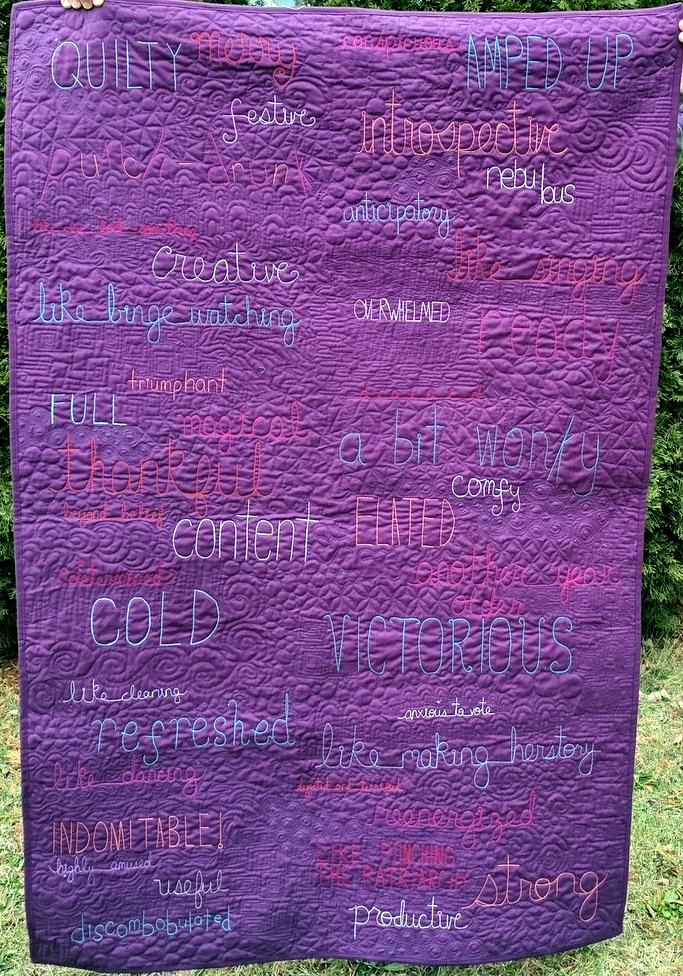 QUILTY
merry
conspicuous
AMPED UP
festive
introspective
punch-drunk
nebulous
anticipatory
creative
like singing
like binge watching
OVERWHELMED
ready
triumphant
FULL
magical
a bit wonky
thankful
comfy
beyond belief
content
ELATED
determined
another year
older
COLD
VICTORIOUS
like cleaning
anxious to vote
refreshed
like making herstory
like dancing
reenergized
INDOMITABLE!
LIKE PUNCHING
THE PATRIARCHY
highly amused
strong
useful
productive
discombobulated